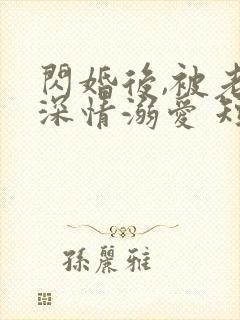 閃婚後,被老
深情溺愛 短
孫麗雅